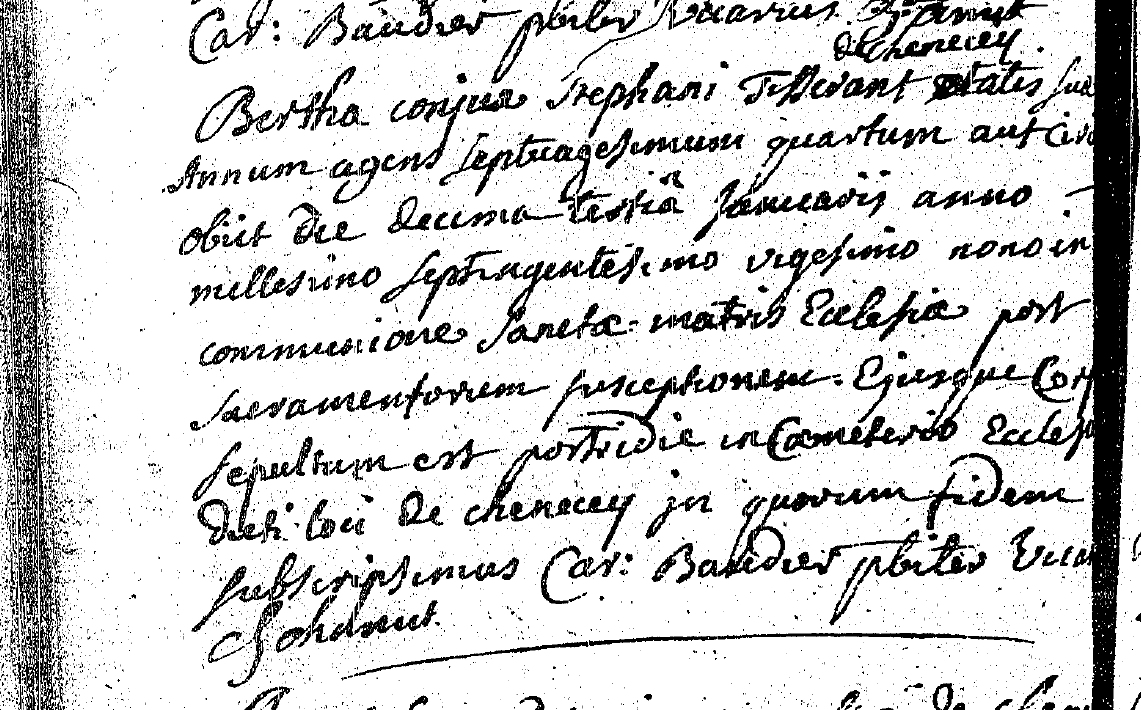 Car: Baudier pbiter Vicarius
de chenecey
Bertha conjux Stephani Tisserant ætatis suæ
Annum agens septuagesimum quartum aut circ
obiit die decima tertiâ Januarii anno
millesimo septingentesimo vigesimo nono in
communione Sanctæ matris Ecclesiæ post
sacramentorum susceptionem. Ejusque Corp
sepultum est postridie in Cœmeterio Ecclesiæ
dicti loci de chenecey in quorum fidem
subscripsimus Car: Baudier pbiter Vicar